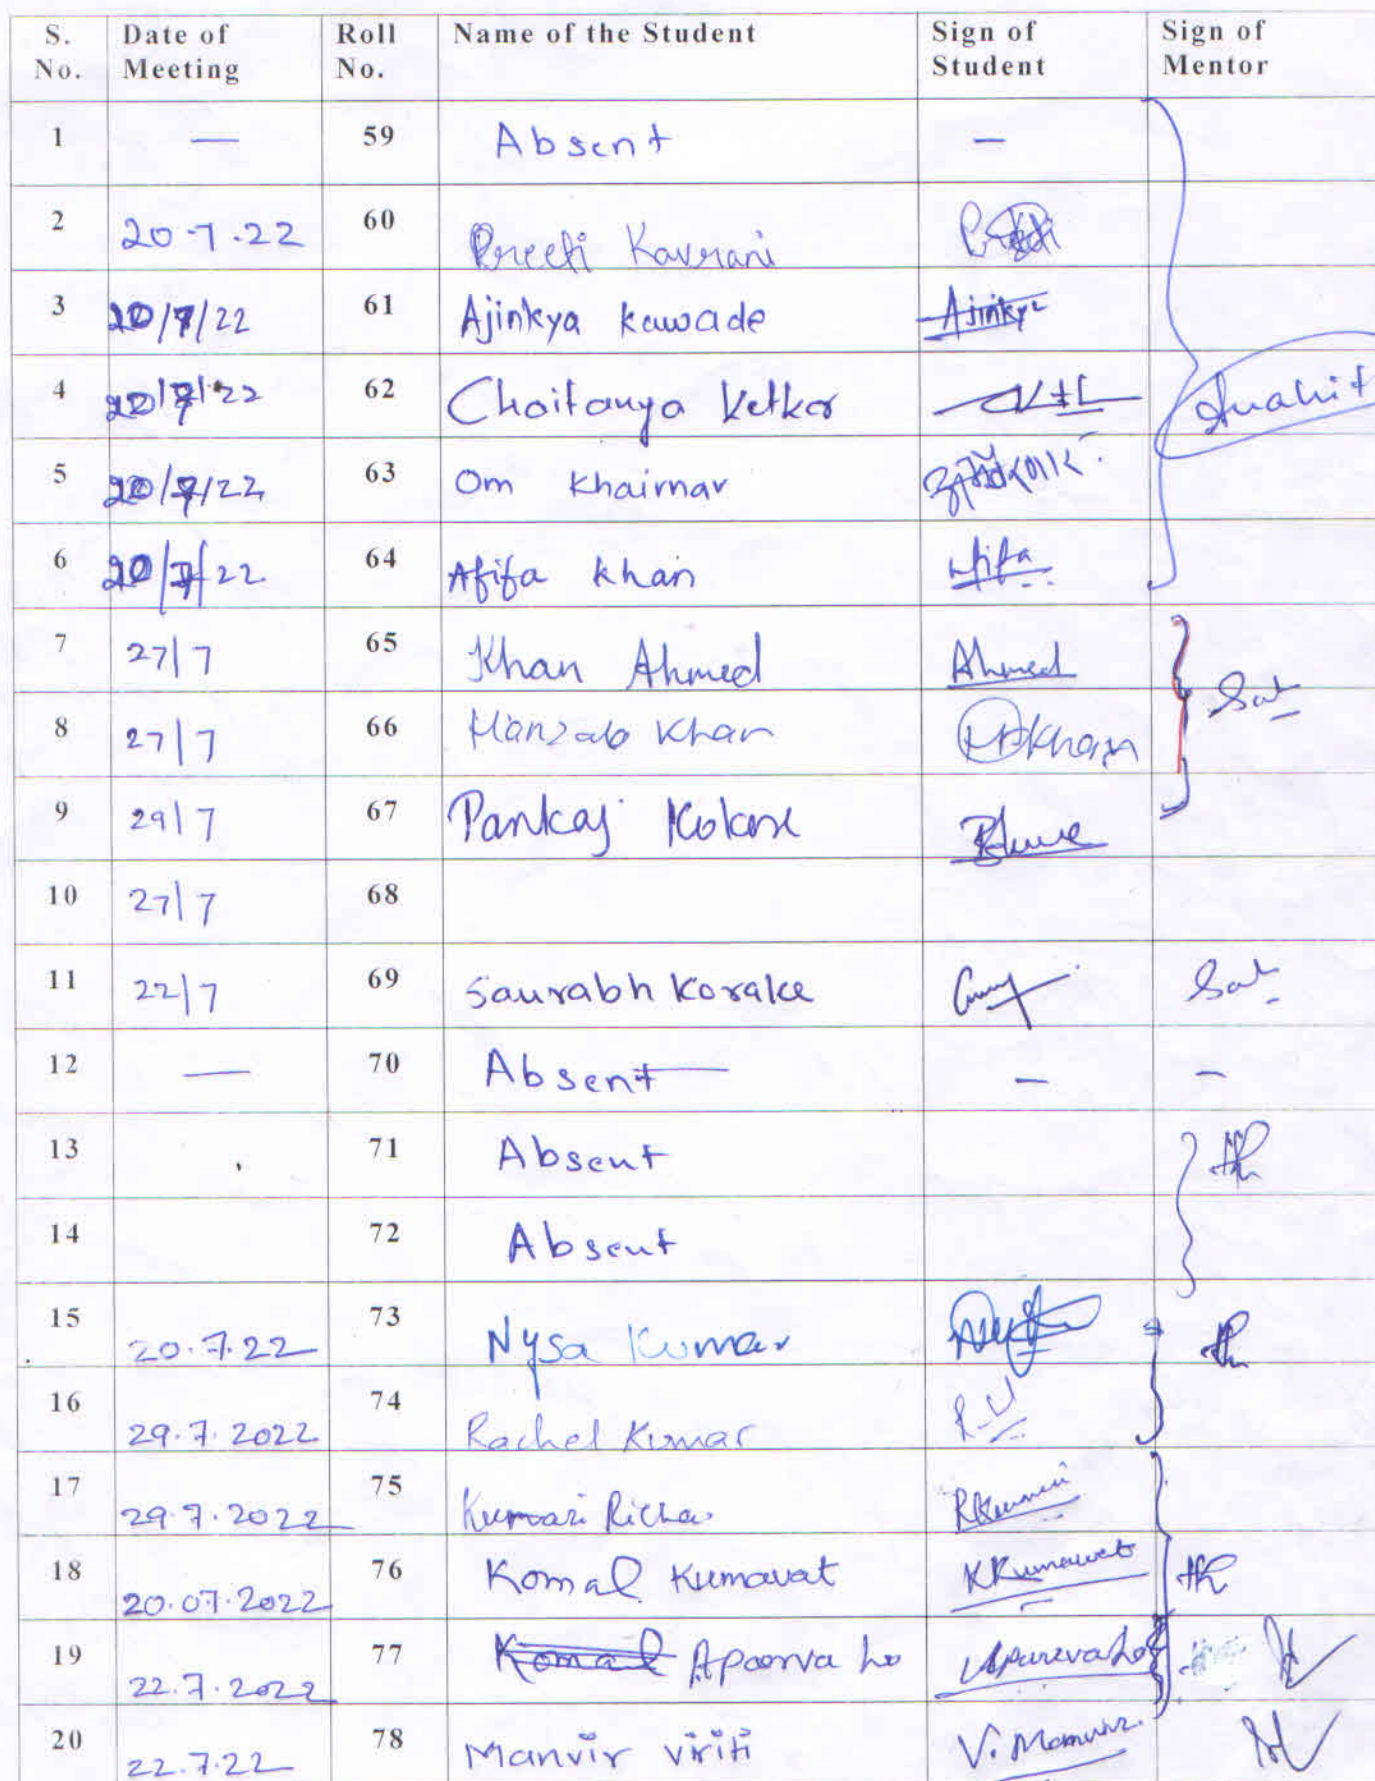 S. No. Date of Meeting Roll No. Name of the Student Sign of Student Sign of Mentor
1 — 59 Absent —
2 20-7-22 60 Preeti Kavrani
3 20/7/22 61 Ajinkya Kawade Ajinkya
4 20/7/22 62 Chaitanya Ketkar
5 20/7/22 63 Om Khairnar
6 20/7/22 64 Afifa Khan Afifa
7 27/7 65 Khan Ahmed Ahmed
8 27/7 66 Khan
9 29/7 67 Pankaj
10 27/7 68
11 22/7 69 Saurabh Korake
12 — 70 Absent — —
13 71 Absent
14 72 Absent
15 20.7.22 73 Nysa Kumar
16 29.7.2022 74 Rachel Kumar
17 29.7.2022 75 Kumari Richa RKumari
18 20.07.2022 76 Komal Kumavat KKumawat
19 22.7.2022 77 Komal Apoorva Lo
20 22.7.22 78 Manvir Viriti V. Manvir